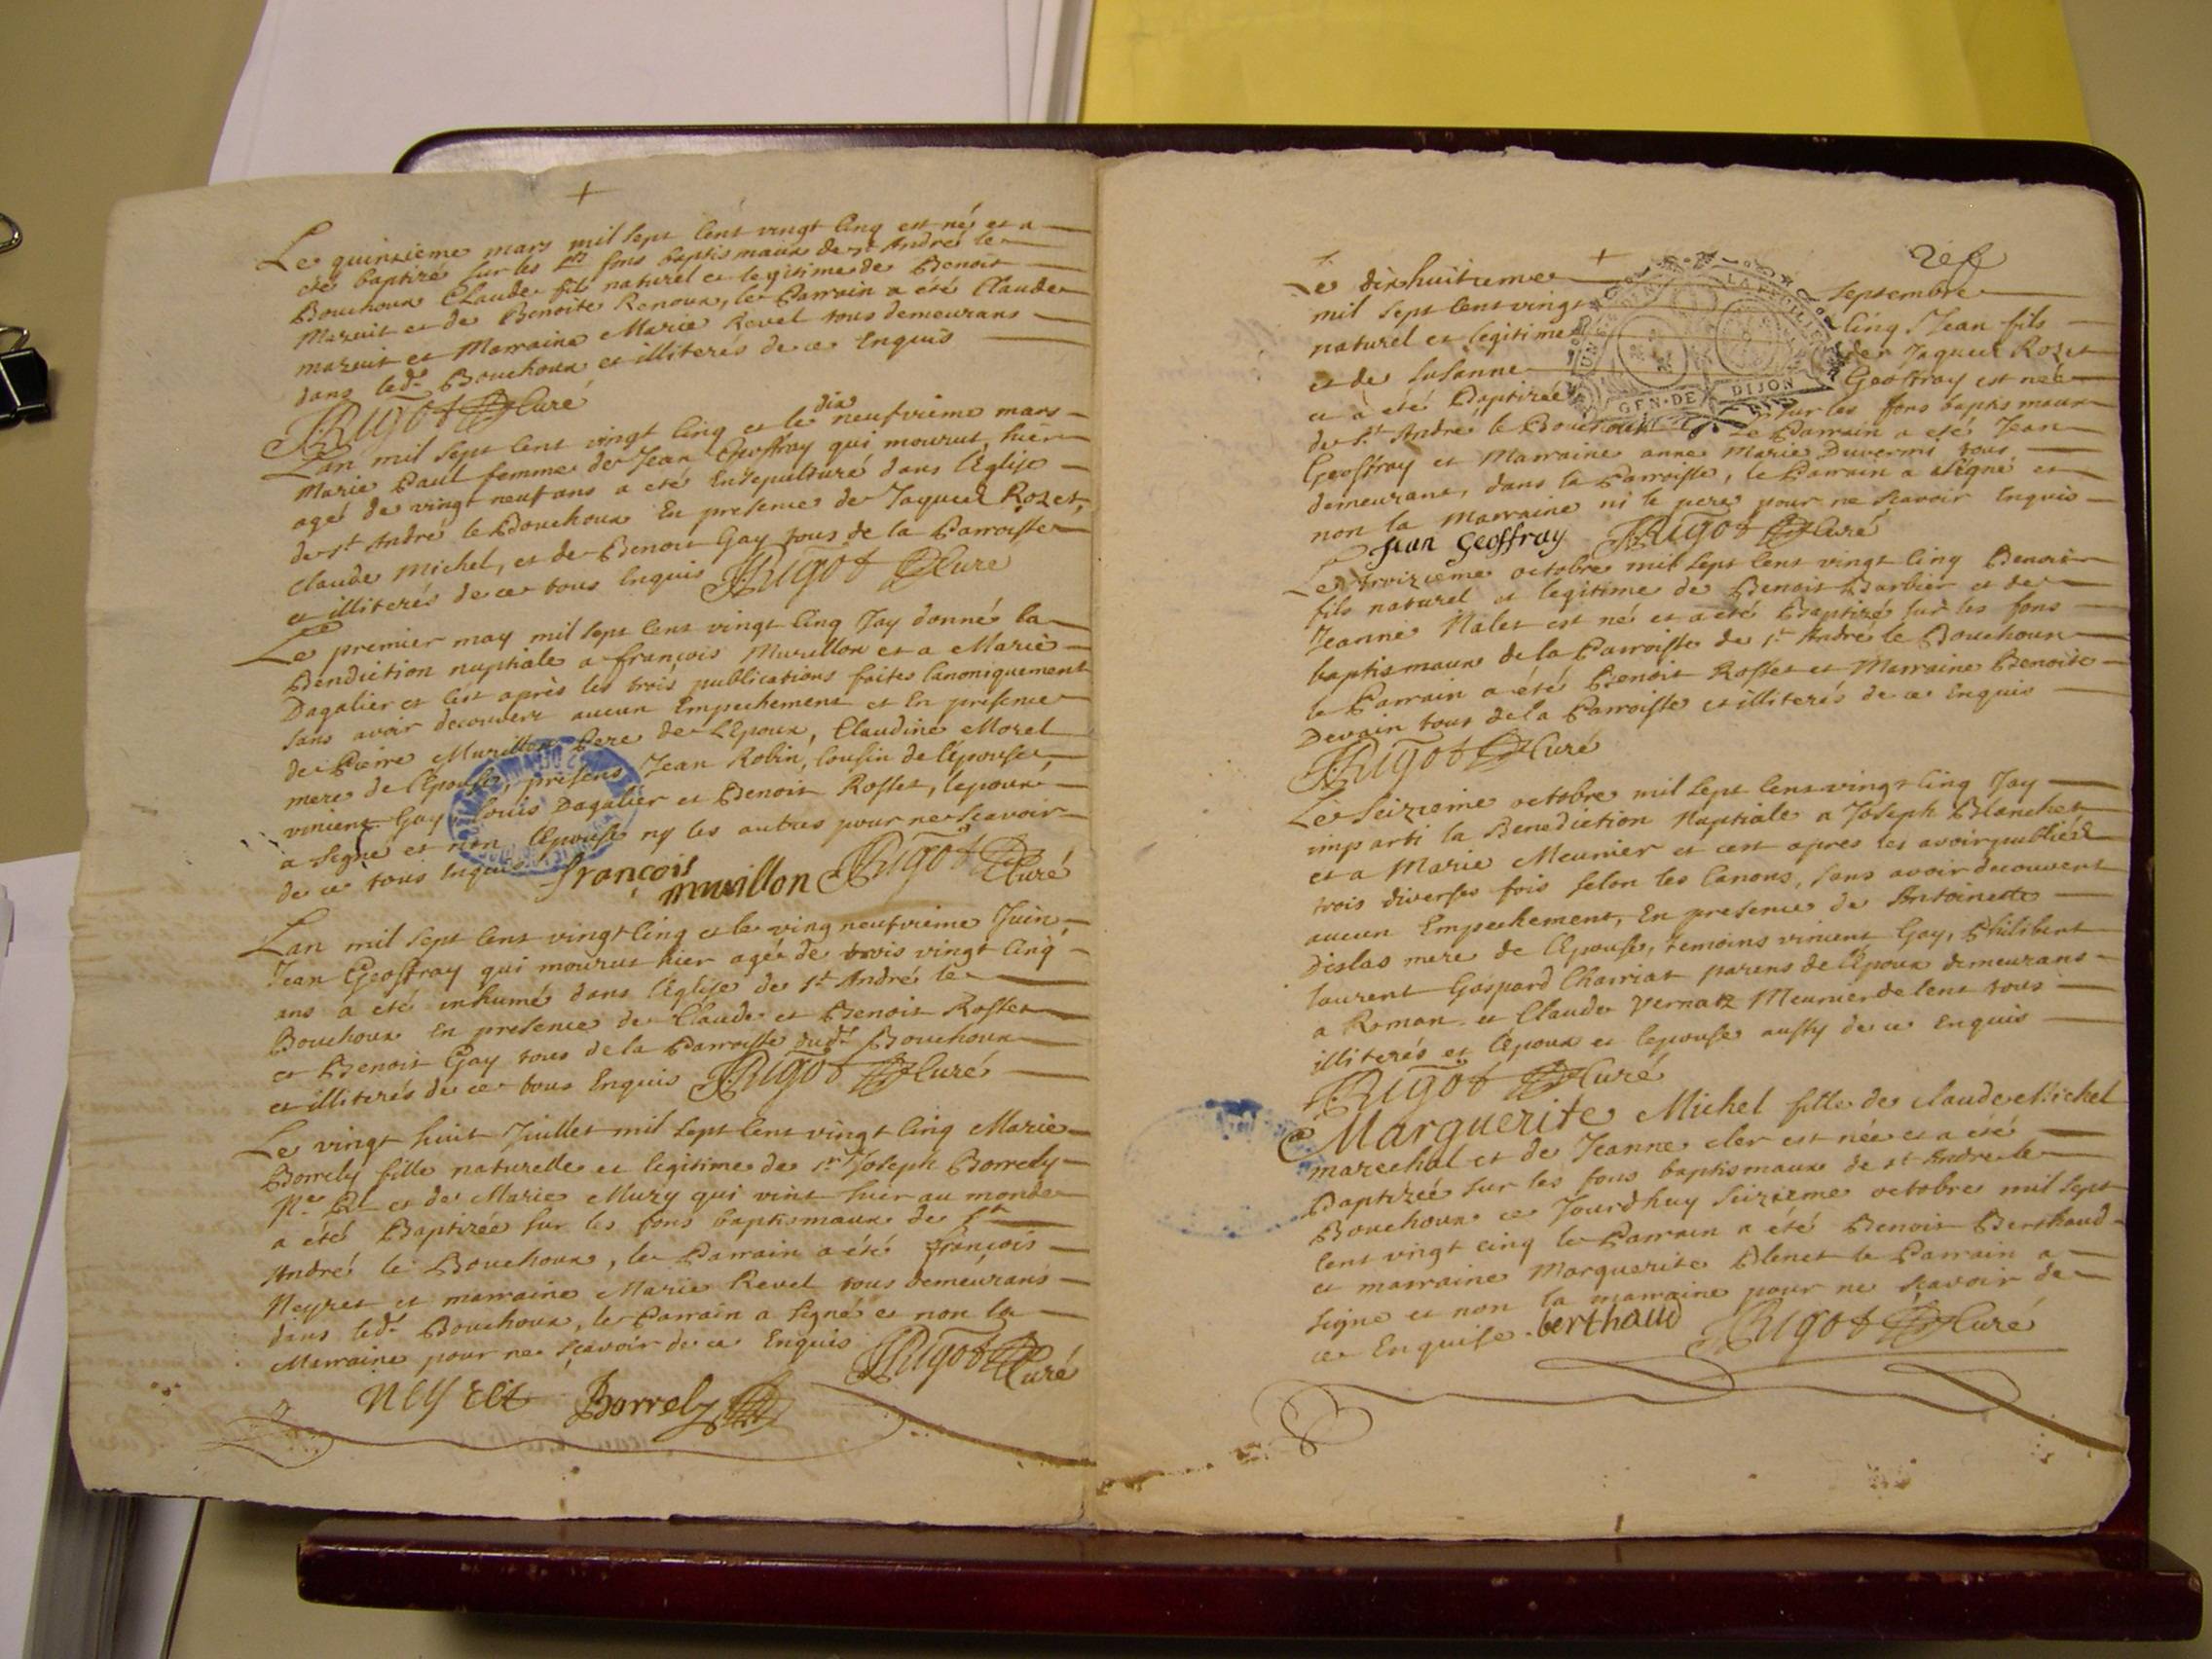 Le quinzieme mars mil sept cent vingt cinq est né et a
été baptizé sur les fons baptismaux de st André le
Bouchoux Claude fils naturel et legitime de Benoit
Mazuit et de Benoite Renoux, le Parrain a été Claude
mazuit et Marraine Marie Revel tous demeurans
dans led. Bouchoux et illiterés de ce Enquis
Rigot Curé
Lan mil sept cent vingt cinq et le dix neufvieme mars
Marie Paul femme de Jean Geoffray qui mourut hier
agé de vingt neuf ans a eté Ensepulturé dans l'Eglise
de st André le Bouchoux En presence de Jaques Rozet,
claude Michel, et de Benoit Gay tous de la Parroisse
et illiterés de ce tous Enquis Rigot Curé
Le premier may mil sept cent vingt cinq Jay donné la
Bendiction nuptiale a françois Muvillon et a Marie
Dagalier et cest après les trois publications faites canoniquement
sans avoir decouvert aucun Empechement et En presence
de Pierre Muvillon Pere de L'Epoux, Claudine Morel
mere de l'Epouse, presens Jean Robin, cousin de l'épouse,
vincent Gay, Louis Dagalier et Benoit Rosset, lepoux
a signé et non l'Epouse ny les autres pour ne scavoir
de ce tous Enquis françois
muvillon Rigot Curé
Lan mil sept cent vingt cinq et le ving neufvieme Juin,
Jean Geoffray qui mourut hier agé de trois vingt cinq
ans a eté inhumé dans l'église de st André le
Bouchoux En presence de Claude et Benoit Rosset
et Benoit Gay tous de la Parroisse dud. Bouchoux
et illiterés de ce tous Enquis Rigot Curé
Le vingt huit Juillet mil sept cent vingt cinq Marie
Borrely fille naturelle et legitime de sr Joseph Borrely
et de Marie Mury qui vint hier au monde
a été Baptizée sur les fons baptismaux de st
André le Bouchoux, le Parrain a été françois
Neyret et marraine Marie Revel tous demeurans
dans led. Bouchoux, le Parrain a signé et non la
Marraine pour ne scavoir de ce Enquis
Rigot Curé
Neyret Borrely
Le dixhuitieme Septembre
mil sept cent vingt cinq Jean fils
naturel et legitime de Jaques Rozet
et de susanne Geoffray est née
et a été Baptizée sur les fons baptismaux
de st André le Bouchoux Le Parrain a eté Jean
Geoffray et Marraine anne Marie Duverni tous
demeurans, dans la Parroisse, le Parrain a signé et
non la marraine ni le pere pour ne scavoir Enquis
Jean Geoffray Rigot Curé
GEN·DE DIJON
Le troizieme octobre mil sept cent vingt cinq Benoit
fils naturel et legitime de Benoit Barbier et de
Jeanne Nalet est né et a été Baptizé sur les fons
baptismaux de la Parroisse de st André le Bouchoux
le Parrain a été Benoit Rosset et Marraine Benoite
Devain tous de la Parroisse et illiterés de ce Enquis
Rigot Curé
Le seizieme octobre mil sept cent vingt cinq Jay
imparti la Benediction Nuptiale a Joseph Blanchet
et a Marie Meunier et cest apres les avoir publiéz
trois diverses fois selon les Canons, sans avoir decouvert
aucun Empechement, En presence de Antoinette
Dislas mere de l'Epouse, temoins vincent Gay, Philibert
laurent Gaspard Charriat parens de l'Epoux demeurans
a Roman et Claude Vernatz Meunier de lent tous
illiterés et l'époux et lepouse aussy de ce Enquis
Rigot Curé
Marguerite Michel fille de claude Michel
marechal et de Jeanne cler est née et a eté
Baptizée sur les fons baptismaux de st André le
Bouchoux ce Jourdhuy seizieme octobre mil sept
cent vingt cinq le Parrain a été Benoit Berthaud
et marraine Marguerite Blenet le Parrain a
signe et non la marraine pour ne scavoir de
ce Enquise. berthaud Rigot Curé